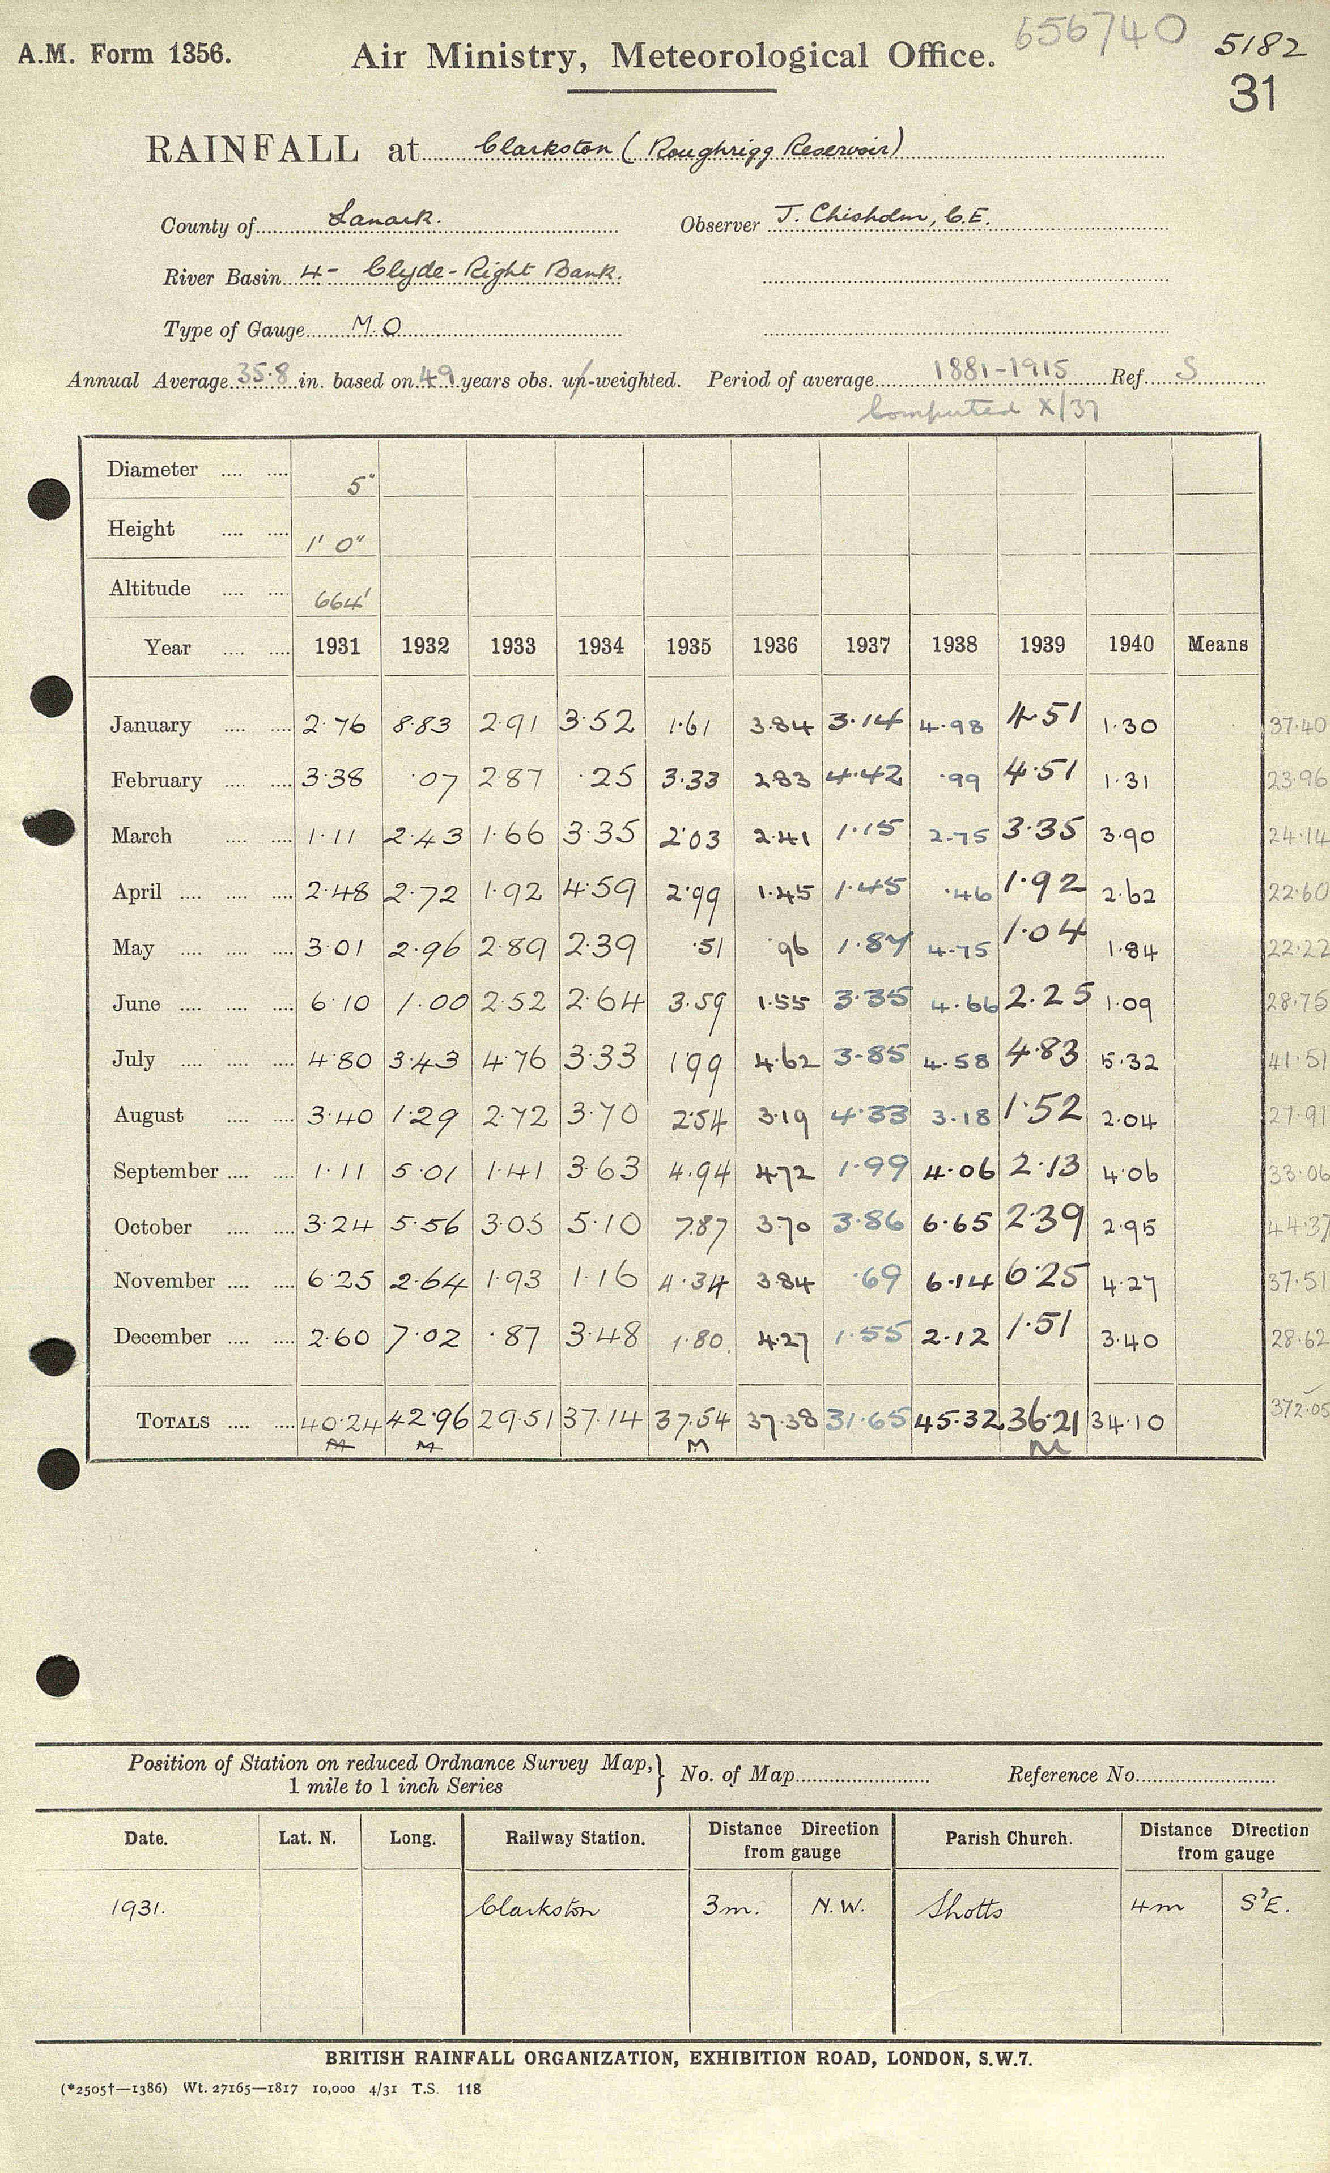 656740
5182
A.M. Form 1356. Air Ministry, Meteorological Office.
31
RAINFALL at Clarkston (Roughrigg Reservoir)
County of Lanark. Observer J. Chisholm, C.E.
River Basin 4- Clyde-Right Bank.
Type of Gauge M.O
Annual Average 35.8 in. based on 49 years obs. un-weighted. Period of average 1881-1915 Ref. S
Computed X/37
Diameter 5"
Height 1' 0"
Altitude 664'
Year 1931 1932 1933 1934 1935 1936 1937 1938 1939 1940 Means
January 2.76 8.83 2.91 3.52 1.61 3.84 3.14 4.98 4.51 1.30 37.40
February 3.38 .07 2.87 .25 3.33 2.83 4.42 .99 4.51 1.31 23.96
March 1.11 2.43 1.66 3.35 2.03 2.41 1.15 2.75 3.35 3.90 24.14
April 2.48 2.72 1.92 4.59 2.99 1.45 1.45 .46 1.92 2.62 22.60
May 3.01 2.96 2.89 2.39 .51 .96 1.87 4.75 1.04 1.84 22.22
June 6.10 1.00 2.52 2.64 3.59 1.55 3.35 4.66 2.25 1.09 28.75
July 4.80 3.43 4.76 3.33 1.99 4.62 3.85 4.58 4.83 5.32 41.51
August 3.40 1.29 2.72 3.70 2.54 3.19 4.33 3.18 1.52 2.04 27.91
September 1.11 5.01 1.41 3.63 4.94 4.72 1.99 4.06 2.13 4.06 33.06
October 3.24 5.56 3.05 5.10 7.87 3.70 3.86 6.65 2.39 2.95 44.37
November 6.25 2.64 1.93 1.16 4.34 3.84 .69 6.14 6.25 4.27 37.51
December 2.60 7.02 .87 3.48 1.80 4.27 1.55 2.12 1.51 3.40 28.62
TOTALS 40.24 42.96 29.51 37.14 37.54 37.38 31.65 45.32 36.21 34.10 372.05
M M M M
Position of Station on reduced Ordnance Survey Map, 1 mile to 1 inch Series } No. of Map Reference No.
Date. Lat. N. Long. Railway Station. Distance Direction from gauge Parish Church. Distance Direction from gauge
1931. Clarkston 3m. N.W. Shotts 4m S'E.
BRITISH RAINFALL ORGANIZATION, EXHIBITION ROAD, LONDON, S.W.7.
(*2505†—1386) Wt. 27165—1817 10,000 4/31 T.S. 118